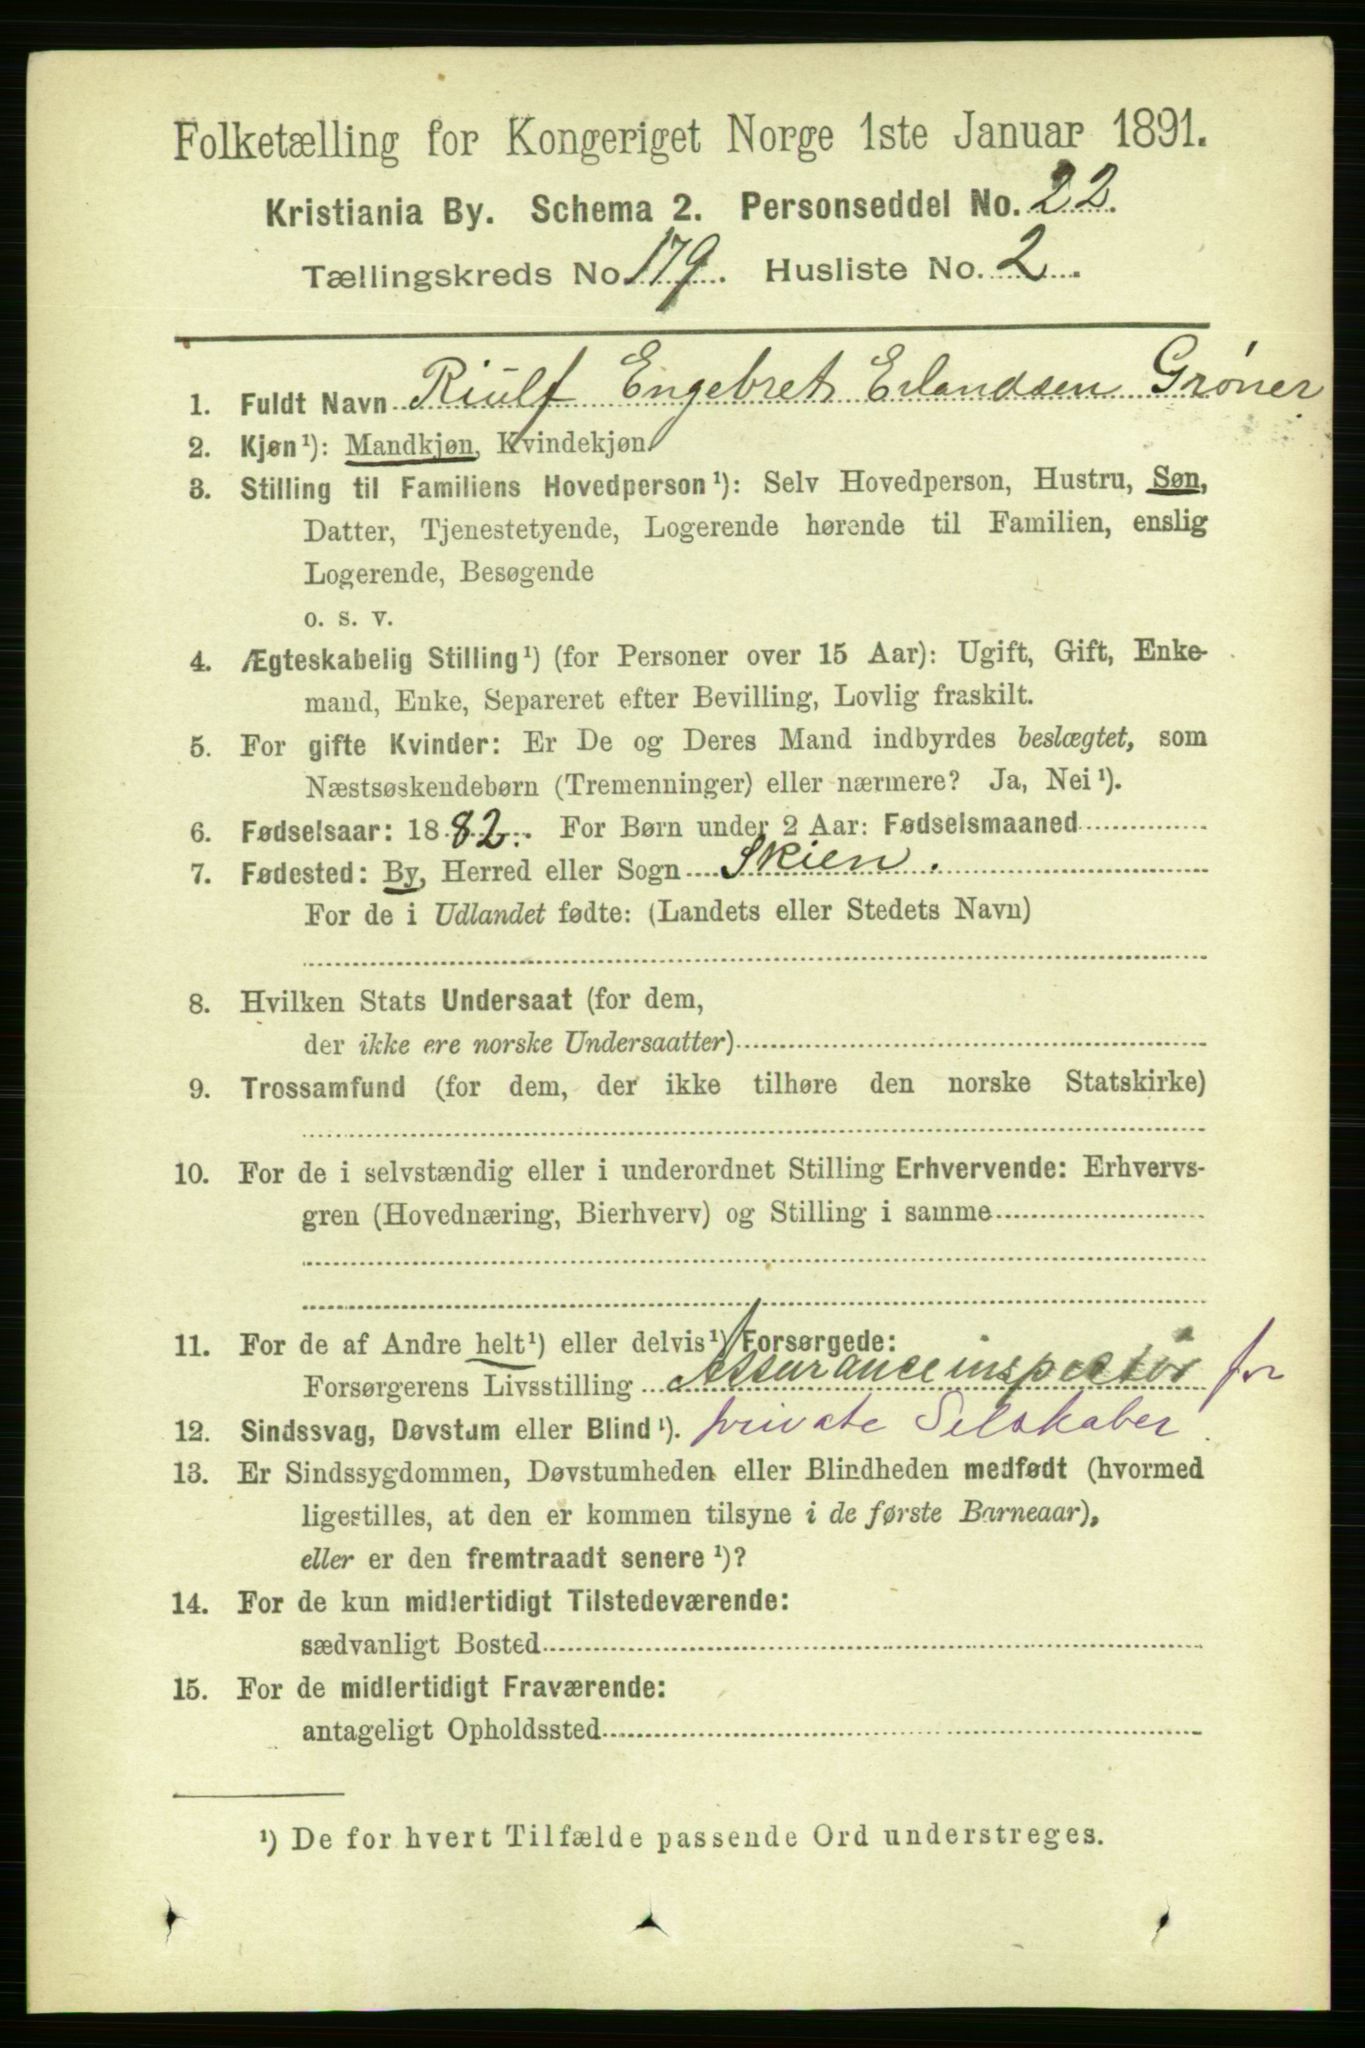 Folketælling for Kongeriget Norge 1ste Januar 1891.
Kristiania By. Schema 2. Personseddel No. 22.
Tællingskreds No. 179. Husliste No. 2.
1. Fuldt Navn Riulf Engebret Erlandsen Grøner
2. Kjøn¹): Mandkjøn, Kvindekjøn.
3. Stilling til Familiens Hovedperson¹): Selv Hovedperson, Hustru, Søn,
Datter, Tjenestetyende, Logerende hørende til Familien, enslig
Logerende, Besøgende
o. s. v.
4. Ægteskabelig Stilling¹) (for Personer over 15 Aar): Ugift, Gift, Enke-
mand, Enke, Separeret efter Bevilling, Lovlig fraskilt.
5. For gifte Kvinder: Er De og Deres Mand indbyrdes beslægtet, som
Næstsøskendebørn (Tremenninger) eller nærmere? Ja, Nei¹).
6. Fødselsaar: 1882. For Børn under 2 Aar: Fødselsmaaned
7. Fødested: By, Herred eller Sogn Skien.
For de i Udlandet fødte: (Landets eller Stedets Navn)
8. Hvilken Stats Undersaat (for dem,
der ikke ere norske Undersaatter)
9. Trossamfund (for dem, der ikke tilhøre den norske Statskirke)
10. For de i selvstændig eller i underordnet Stilling Erhvervende: Erhvervs-
gren (Hovednæring, Bierhverv) og Stilling i samme
11. For de af Andre helt¹) eller delvis¹) Forsørgede:
Forsørgerens Livsstilling Assuranceinspectør for
12. Sindssvag, Døvstum eller Blind¹). private Selskaber
13. Er Sindssygdommen, Døvstumheden eller Blindheden medfødt (hvormed
ligestilles, at den er kommen tilsyne i de første Barneaar),
eller er den fremtraadt senere¹)?
14. For de kun midlertidigt Tilstedeværende:
sædvanligt Bosted
15. For de midlertidigt Fraværende:
antageligt Opholdssted
¹) De for hvert Tilfælde passende Ord understreges.